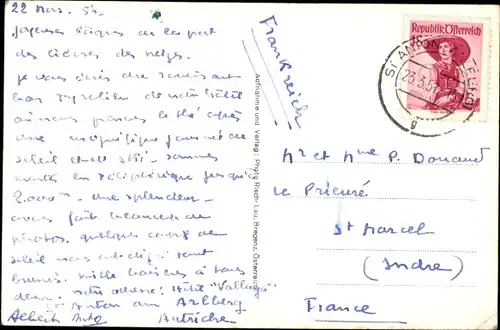 22 Mars. 54.
Joyeuses Pâques de la part
des lièvres des neiges.
je vous écris du
bar tyrolien de notre hôtel
où nous prenons le thé après
une magnifique journée de
soleil et de ski. sommes
montés en téléphérique jusqu'à
2.000m - une splendeur -
avons fait beaucoup de
photos. quelques coups de
soleil mais sont
brunis. mille baisers à tous
deux. notre adresse : Hôtel "Valluga"
St Anton am Arlberg
Autriche
Frankreich
Aufnahme und Verlag: Photo Risch-Lau, Bregenz, Österreich
Republik Österreich
ST ANTON
23.3.5
g
Mr et Mme P. Donand
Le Prieuré
St Marcel
(Indre)
France